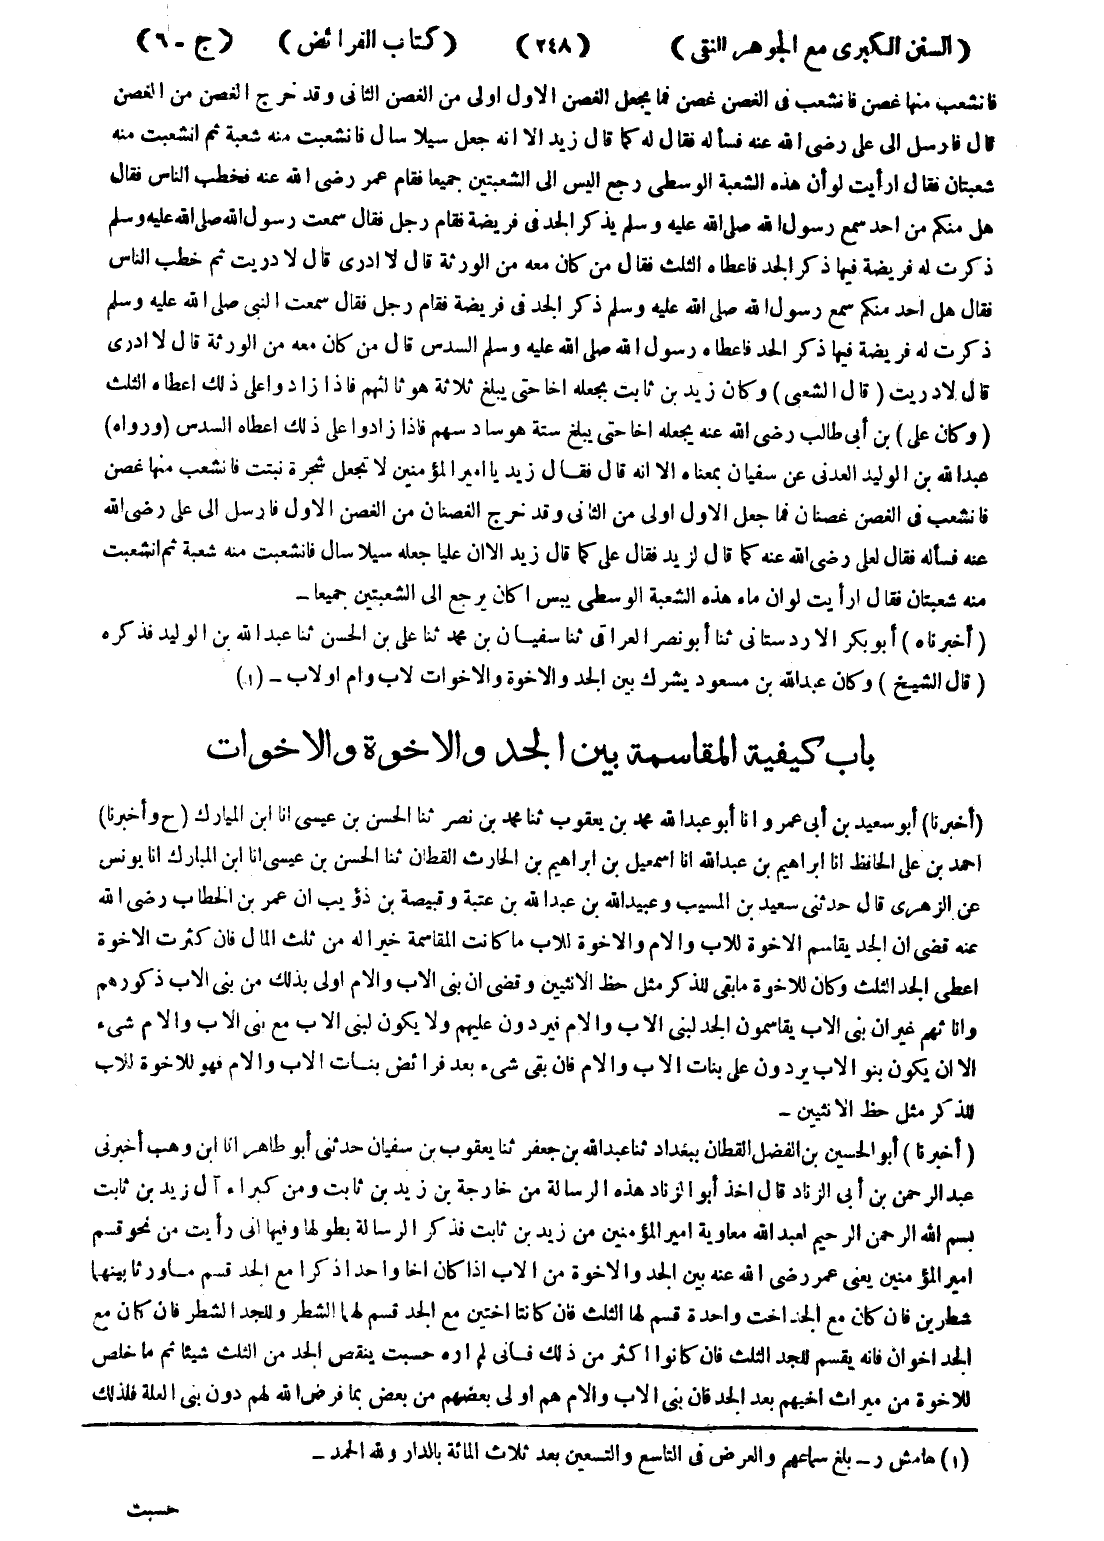 (السنن الكبرى مع الجوهر النقى) (٢٤٨) (كتاب الفرائض) (ج - ٦)
فانشعب منها غصن فانشعب فى الغصن غصن فما يجعل الغصن الاول اولى من الغصن الثانى وقد خرج الغصن من الغصن
قال فارسل الى على رضى الله عنه فسأله فقال له كما قال زيد الا انه جعل سيلا سال فانشعبت منه شعبة ثم انشعبت منه
شعبتان فقال ارأيت لو أن هذه الشعبة الوسطى رجع اليس الى الشعبتين جميعا فقام عمر رضى الله عنه فخطب الناس فقال
هل منكم من احد سمع رسول الله صلى الله عليه وسلم يذكر الجد فى فريضة فقام رجل فقال سمعت رسول الله صلى الله عليه وسلم
ذكرت له فريضة فيها ذكر الجد فاعطاه الثلث فقال من كان معه من الورثة قال لا ادرى قال لا دريت ثم خطب الناس
فقال هل احد منكم سمع رسول الله صلى الله عليه وسلم ذكر الجد فى فريضة فقام رجل فقال سمعت النبى صلى الله عليه وسلم
ذكرت له فريضة فيها ذكر الجد فاعطاه رسول الله صلى الله عليه وسلم السدس قال من كان معه من الورثة قال لا ادرى
قال لا دريت (قال الشعبى) وكان زيد بن ثابت يجعله اخا حتى يبلغ ثلاثة هو ثالثهم فاذا زادوا على ذلك اعطاه الثلث
(وكان على) بن أبى طالب رضى الله عنه يجعله اخا حتى يبلغ ستة هو سادسهم فاذا زادوا على ذلك اعطاه السدس (ورواه)
عبد الله بن الوليد العدنى عن سفيان بمعناه الا انه قال فقال زيد يا امير المؤمنين لا تجعل شجرة نبتت فانشعب منها غصن
فانشعب فى الغصن غصنان فما جعل الاول اولى من الثانى وقد خرج الغصنان من الغصن الاول فارسل الى على رضى الله
عنه فسأله فقال لعلى رضى الله عنه كما قال لزيد فقال على كما قال زيد الا ان عليا جعله سيلا سال فانشعبت منه شعبة ثم انشعبت
منه شعبتان فقال ارأيت لو ان ماء هذه الشعبة الوسطى يبس اكان يرجع الى الشعبتين جميعا ــ
(أخبرناه) أبو بكر الاردستانى ثنا أبو نصر العراقى ثنا سفيان بن محمد ثنا على بن الحسن ثنا عبد الله بن الوليد فذكره
(قال الشيخ) وكان عبد الله بن مسعود يشرك بين الجد والاخوة والاخوات لاب وام او لاب ــ (١)
باب كيفية المقاسمة بين الجد والاخوة والاخوات
(أخبرنا) أبو سعيد بن أبى عمرو انا أبو عبد الله محمد بن يعقوب ثنا محمد بن نصر ثنا الحسن بن عيسى انا ابن المبارك (ح وأخبرنا)
احمد بن على الحافظ انا ابراهيم بن عبد الله انا اسمعيل بن ابراهيم بن الحارث القطان ثنا الحسن بن عيسى انا ابن المبارك انا يونس
عن الزهرى قال حدثنى سعيد بن المسيب وعبيد الله بن عبد الله بن عتبة وقبيصة بن ذؤيب ان عمر بن الخطاب رضى الله
عنه قضى ان الجد يقاسم الاخوة للاب والام والاخوة للاب ما كانت المقاسمة خيرا له من ثلث المال فان كثرت الاخوة
اعطى الجد الثلث وكان للاخوة ما بقى للذكر مثل حظ الانثيين وقضى ان بنى الاب والام اولى بذلك من بنى الاب ذكورهم
واناثهم غير ان بنى الاب يقاسمون الجد لبنى الاب والام فيردون عليهم ولا يكون لبنى الاب مع بنى الاب والام شىء
الا ان يكون بنو الاب يردون على بنات الاب والام فان بقى شىء بعد فرائض بنات الاب والام فهو للاخوة للاب
للذكر مثل حظ الانثيين ــ
(أخبرنا) أبو الحسين بن الفضل القطان ببغداد ثنا عبد الله بن جعفر ثنا يعقوب بن سفيان حدثنى أبو طاهر انا ابن وهب أخبرنى
عبد الرحمن بن أبى الزناد قال اخذ أبو الزناد هذه الرسالة من خارجة بن زيد بن ثابت ومن كبراء آل زيد بن ثابت
بسم الله الرحمن الرحيم لعبد الله معاوية امير المؤمنين من زيد بن ثابت فذكر الرسالة بطولها وفيها انى رأيت من نحو قسم
امير المؤمنين يعنى عمر رضى الله عنه بين الجد والاخوة من الاب اذا كان اخا واحدا ذكرا مع الجد قسم ما ورثا بينهما
شطرين فان كان مع الجد اخت واحدة قسم لها الثلث فان كانتا اختين مع الجد قسم لهما الشطر وللجد الشطر فان كان مع
الجد اخوان فانه يقسم للجد الثلث فان كانوا اكثر من ذلك فانى لم اره حسبت ينقص الجد من الثلث شيئا ثم ما خلص
للاخوة من ميراث اخيهم بعد الجد فان بنى الاب والام هم اولى بعضهم من بعض بما فرض الله لهم دون بنى العلة فلذلك
(١) هامش ر ــ بلغ سماعهم والعرض فى التاسع والتسعين بعد ثلاث المائة بالدار ولله الحمد ــ
حسبت